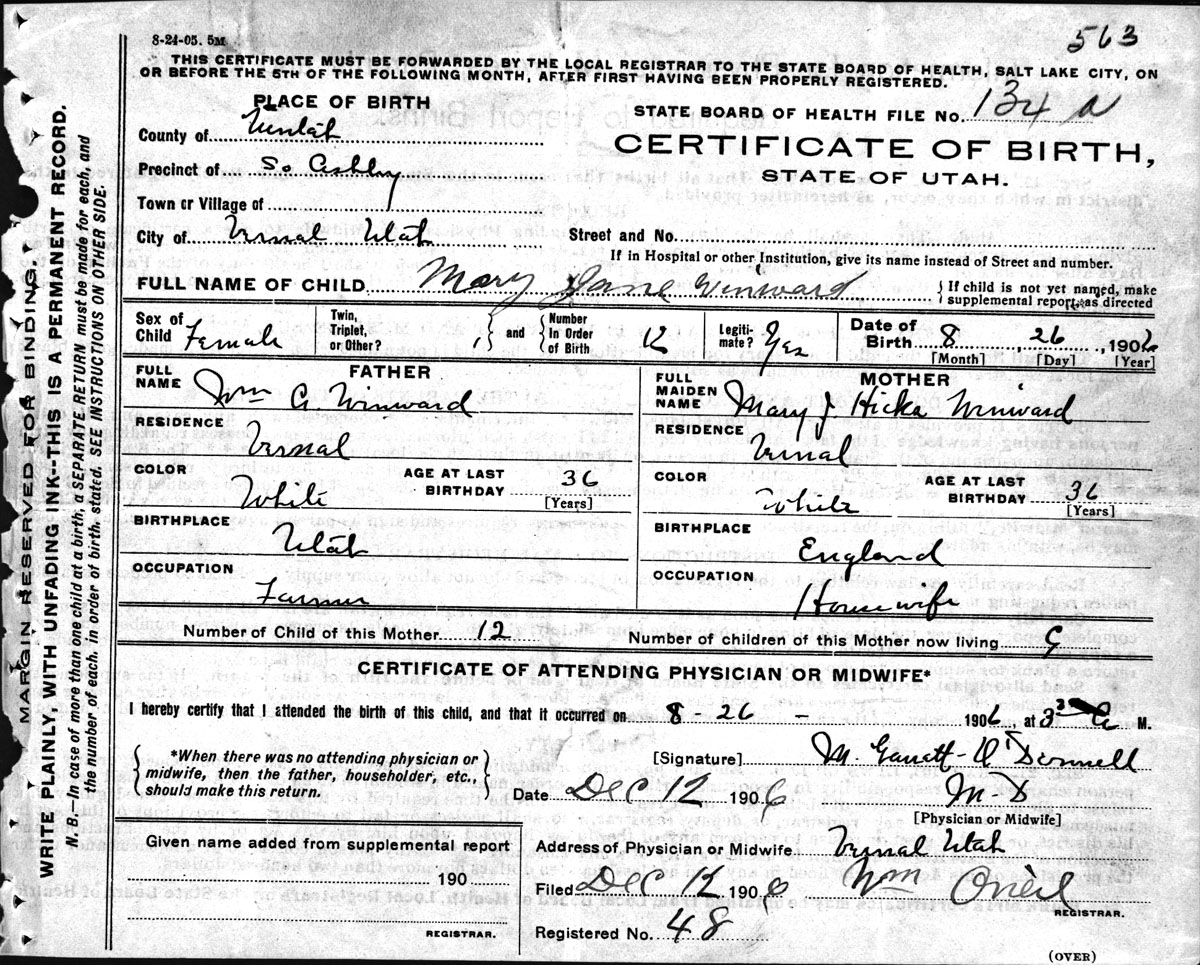 8-24-05. 5M
563
THIS CERTIFICATE MUST BE FORWARDED BY THE LOCAL REGISTRAR TO THE STATE BOARD OF HEALTH, SALT LAKE CITY, ON
OR BEFORE THE 5TH OF THE FOLLOWING MONTH, AFTER FIRST HAVING BEEN PROPERLY REGISTERED.
PLACE OF BIRTH
STATE BOARD OF HEALTH FILE No. 134 a
County of Uintah
CERTIFICATE OF BIRTH,
Precinct of So Ashley
STATE OF UTAH.
Town or Village of
City of Vernal Utah Street and No.
If in Hospital or other Institution, give its name instead of Street and number.
FULL NAME OF CHILD Mary Jane Winward { If child is not yet named, make
supplemental report, as directed
Sex of Child Female Twin, Triplet, or Other? } and { Number In Order of Birth 12 Legiti-mate? Yes Date of Birth 8, 26, 1906
[Month] [Day] [Year]
FATHER MOTHER
FULL NAME Wm G Winward FULL MAIDEN NAME Mary J Hicks Winward
RESIDENCE Vernal RESIDENCE Vernal
COLOR White AGE AT LAST BIRTHDAY 36 [Years] COLOR White AGE AT LAST BIRTHDAY 36 [Years]
BIRTHPLACE Utah BIRTHPLACE England
OCCUPATION Farmer OCCUPATION Housewife
Number of Child of this Mother 12 Number of children of this Mother now living 9
CERTIFICATE OF ATTENDING PHYSICIAN OR MIDWIFE*
I hereby certify that I attended the birth of this child, and that it occurred on 8-26- 1906, at 3 M.
{ *When there was no attending physician or
midwife, then the father, householder, etc.,
should make this return. }
[Signature] M. Garrett O'Donnell
Date Dec 12 1906 M-D
[Physician or Midwife]
Given name added from supplemental report
190
REGISTRAR.
Address of Physician or Midwife Vernal Utah
Filed Dec 12 1906 Wm Oneil
REGISTRAR.
Registered No. 48
(OVER)
MARGIN RESERVED FOR BINDING.
WRITE PLAINLY, WITH UNFADING INK-THIS IS A PERMANENT RECORD.
N. B.—In case of more than one child at a birth, a SEPARATE RETURN must be made for each, and
the number of each, in order of birth, stated. SEE INSTRUCTIONS ON OTHER SIDE.